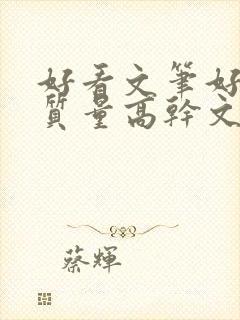 好看文筆好
質量高幹文
蔡輝